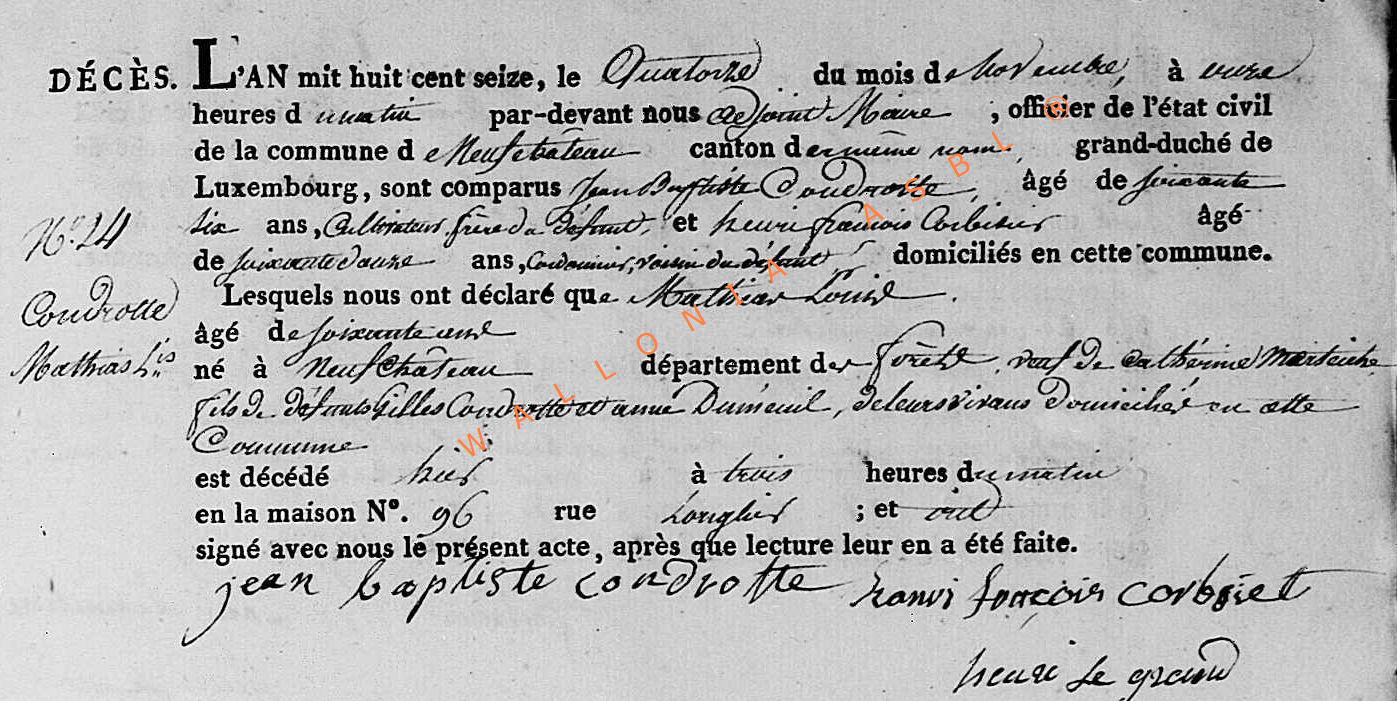 DÉCÈS. L'AN mil huit cent seize, le Quatorze du mois de Novembre, à onze
heures du matin par-devant nous adjoint Maire ; officier de l'état civil
de la commune de Neufchâteau canton du même nom, grand-duché de
Luxembourg, sont comparus Jean Baptiste Condrotte, âgé de soixante
six ans, Cultivateur, frère du défunt, et henri françois Corbisier âgé
N° 24
de soixante douze ans, Cordonnier, voisin du défunt domiciliés en cette commune.
Lesquels nous ont déclaré que Mathias Louis
Condrotte
âgé de soixante
Mathias Lis
né à Neufchâteau département des forêts, veuf de Catherine
fils de défunts Gilles Condrotte et anne Dumenil, de leurs vivans domiciliés en cette
Commune
est décédé hier à trois heures du matin
en la maison N°. 96 rue Longlier ; et ont
signé avec nous le présent acte, après que lecture leur en a été faite.
jean baptiste condrotte henri françois corbisiet
henri le grand
WALLONIA ASBL ®